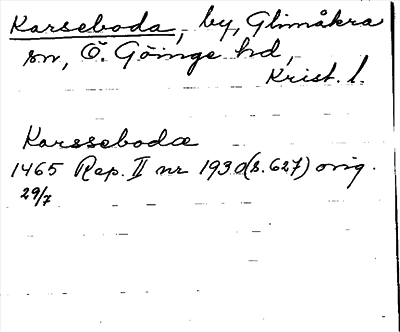 Karseboda, by, Glimåkra
sn, Ö. Göinge hd,
Krist. l.
Karsseboda
1465 Rep. II nr 1930 (s. 627) orig.
29/7